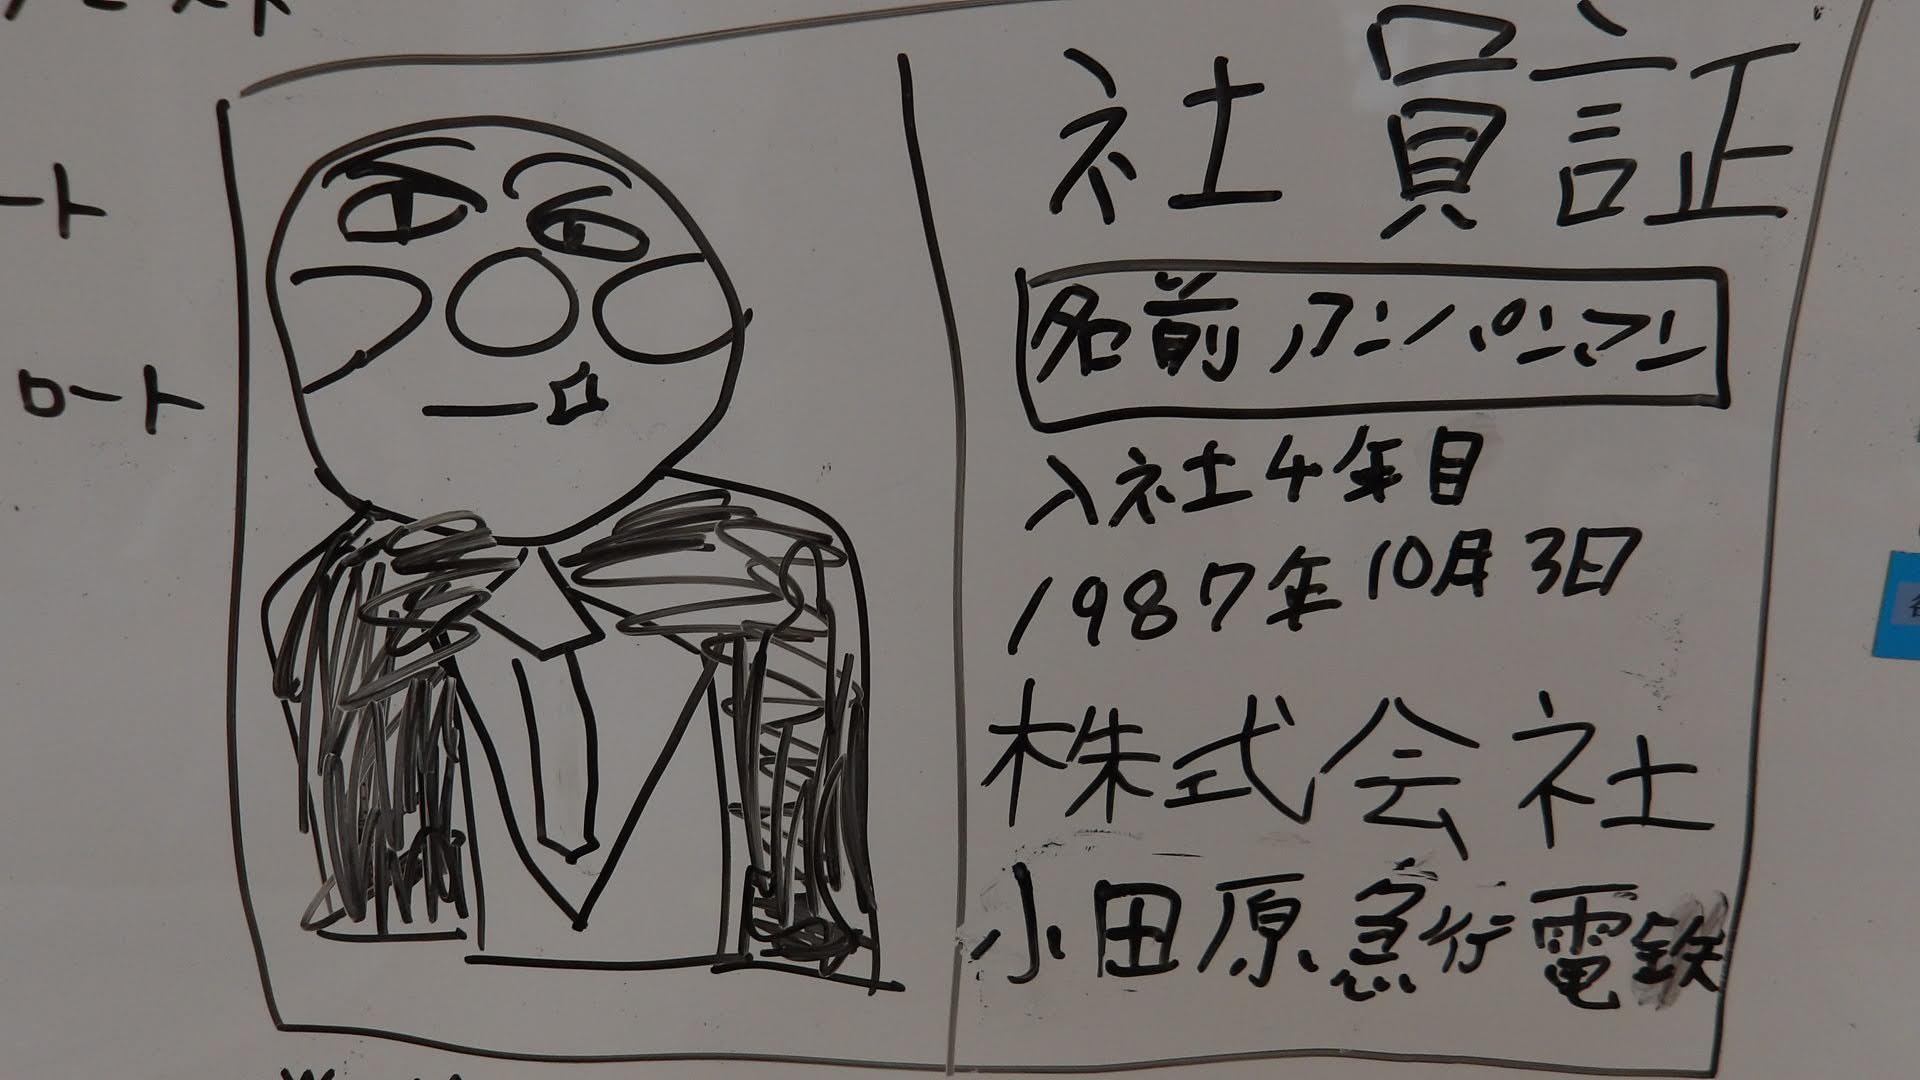 ート
ロート
社員証
名前 アンパンマン
入社4年目
1987年10月3日
株式会社
小田原急行電鉄